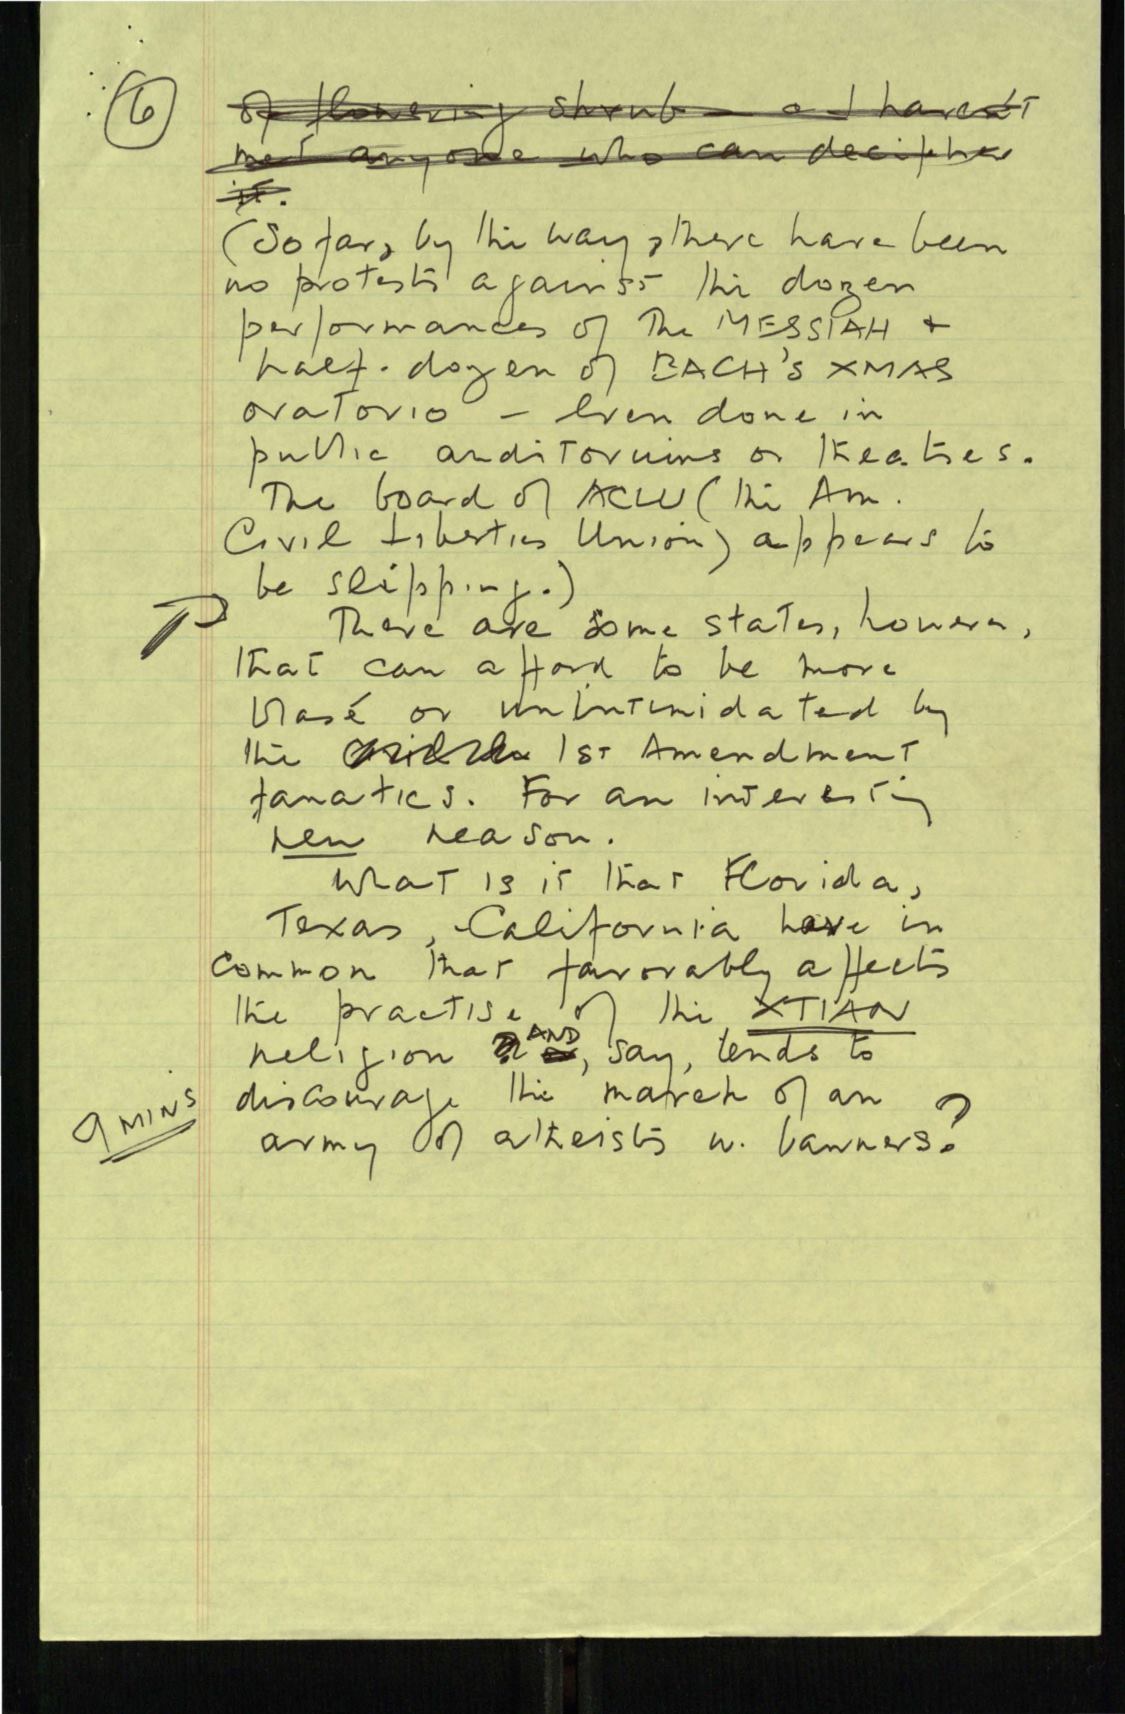 6
of flowering shrub — I haven't
met anyone who can decipher
it.
(So far, by the way, there have been
no protests against the dozen
performances of The MESSIAH +
half-dozen of BACH'S XMAS
oratorio – even done in
public auditoriums or theatres.
The board of ACLU (the Am.
Civil Liberties Union) appears to
be slipping.)
There are some states, however,
that can afford to be more
blasé or unintimidated by
the 1st Amendment
fanatics. For an interesting
new reason.
What is it that Florida,
Texas, California have in
common that favorably affects
the practise of the XTIAN
religion AND, say, tends to
discourage the march of an
army of atheists w. banners?
9 MINS